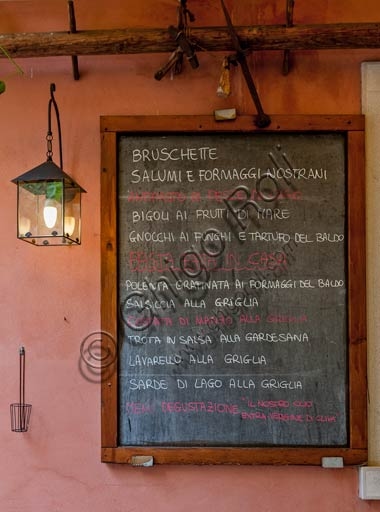 BRUSCHETTE
SALUMI E FORMAGGI NOSTRANI
BIGOLI AI FRUTTI DI MARE
GNOCCHI AI FUNGHI E TARTUFO DEL BALDO
PASTA IN CASA
POLENTA GRATINATA AI FORMAGGI DEL BALDO
SALSICCIA ALLA GRIGLIA
DI MANZO ALLA GRIGLIA
TROTA IN SALSA ALLA GARDESANA
LAVARELLO ALLA GRIGLIA
SARDE DI LAGO ALLA GRIGLIA
MENÙ DEGUSTAZIONE "IL NOSTRO OLIO
EXTRA VERGINE DI OLIVA"